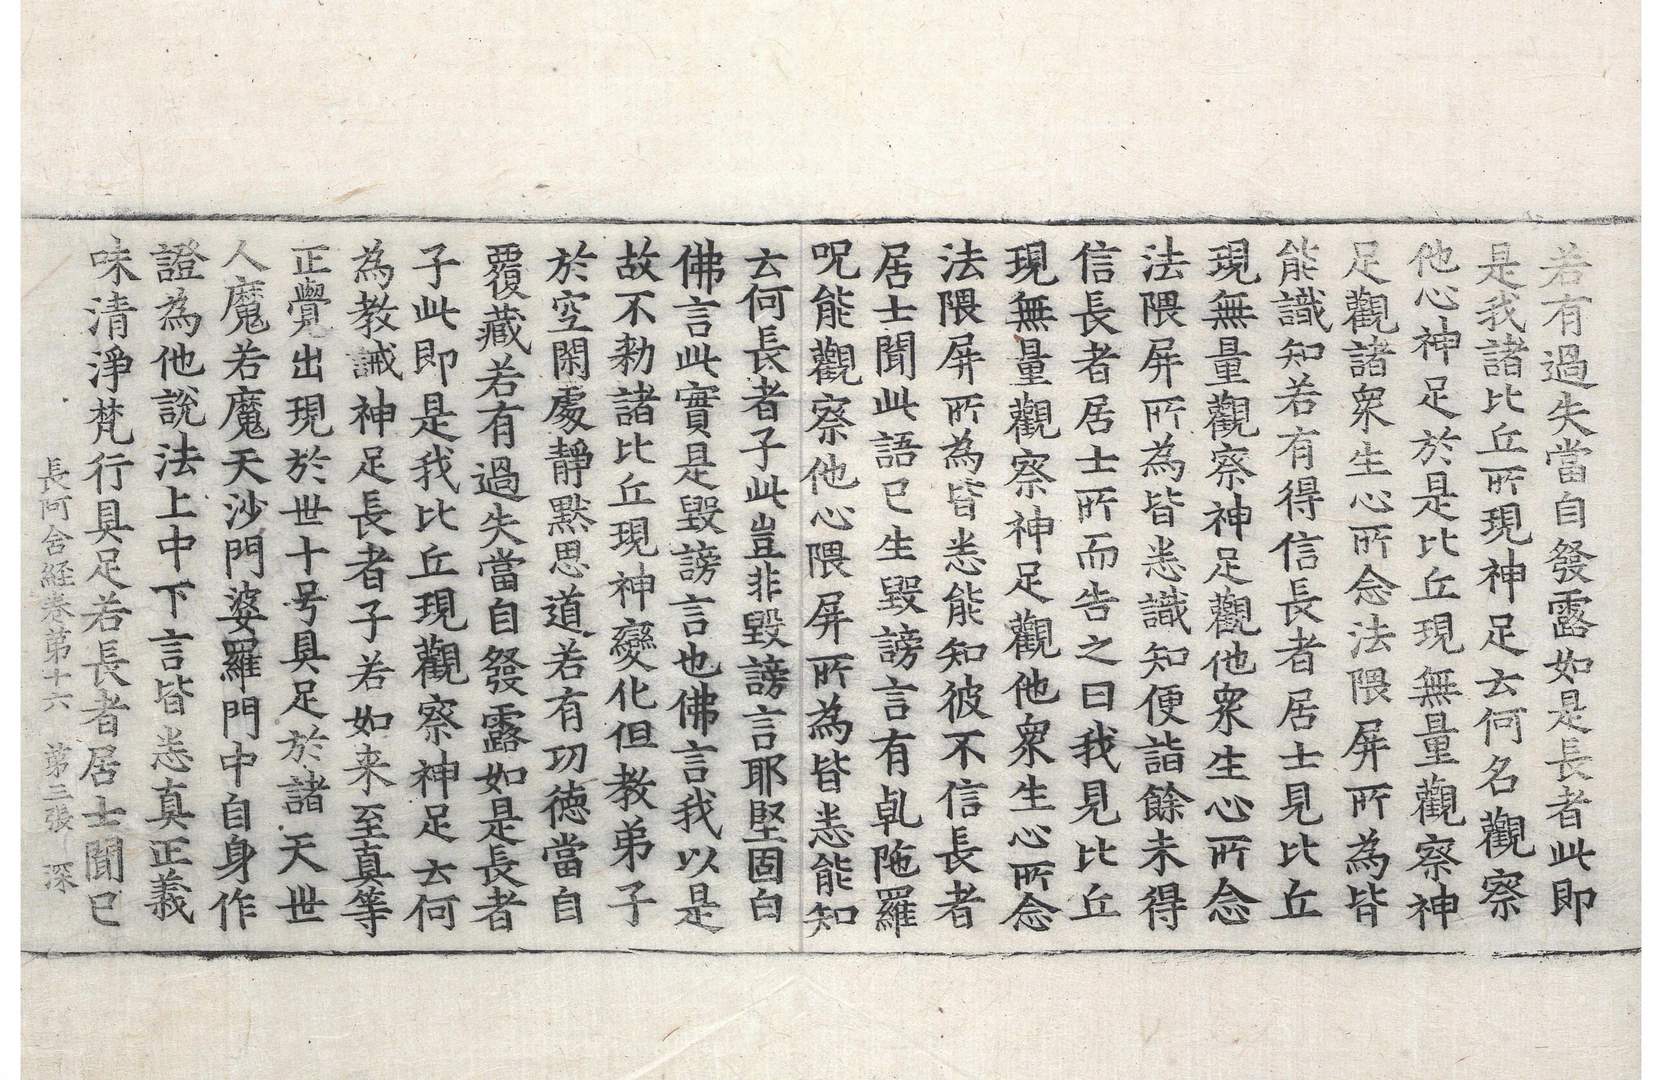 若有過失當自發露如是長者此即
是我諸比丘所現神足云何名觀察
他心神足於是比丘現無量觀察神
足觀諸衆生心所念法隈屏所為皆
能識知若有得信長者居士見比丘
現無量觀察神足觀他衆生心所念
法隈屏所為皆悉識知便詣餘未得
信長者居士所而告之曰我見比丘
現無量觀察神足觀他衆生心所念
法隈屏所為皆悉能知彼不信長者
居士聞此語已生毀謗言有乹陁羅
呪能觀察他心隈屏所為皆悉能知
云何長者子此豈非毀謗言耶堅固白
佛言此實是毀謗言也佛言我以是
故不勑諸比丘現神變化但教弟子
於空閑處靜默思道若有功德當自
覆藏若有過失當自發露如是長者
子此即是我比丘現觀察神足云何
為教誡神足長者子若如来至真等
正覺出現於世十号具足於諸天世
人魔若魔天沙門婆羅門中自身作
證為他說法上中下言皆悉真正義
味清淨梵行具足若長者居士聞已
長阿含経卷第十六　第三張　深